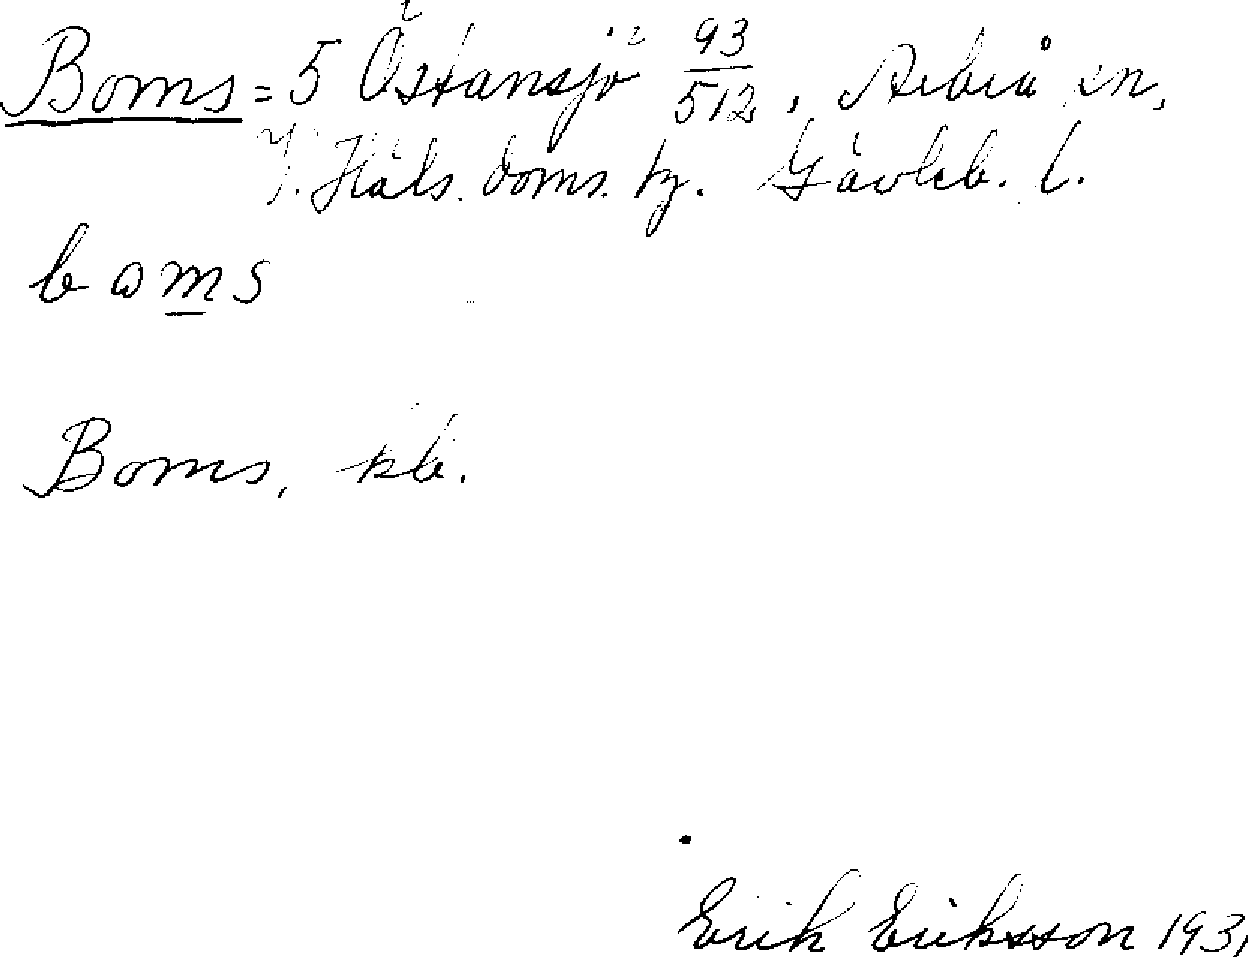 Boms = 5 Östansjö 93/512, Arbrå sn,
V. Häls. doms. hg. Gävleb. l.
bωms
Boms, kb.
Erik Eriksson 1931